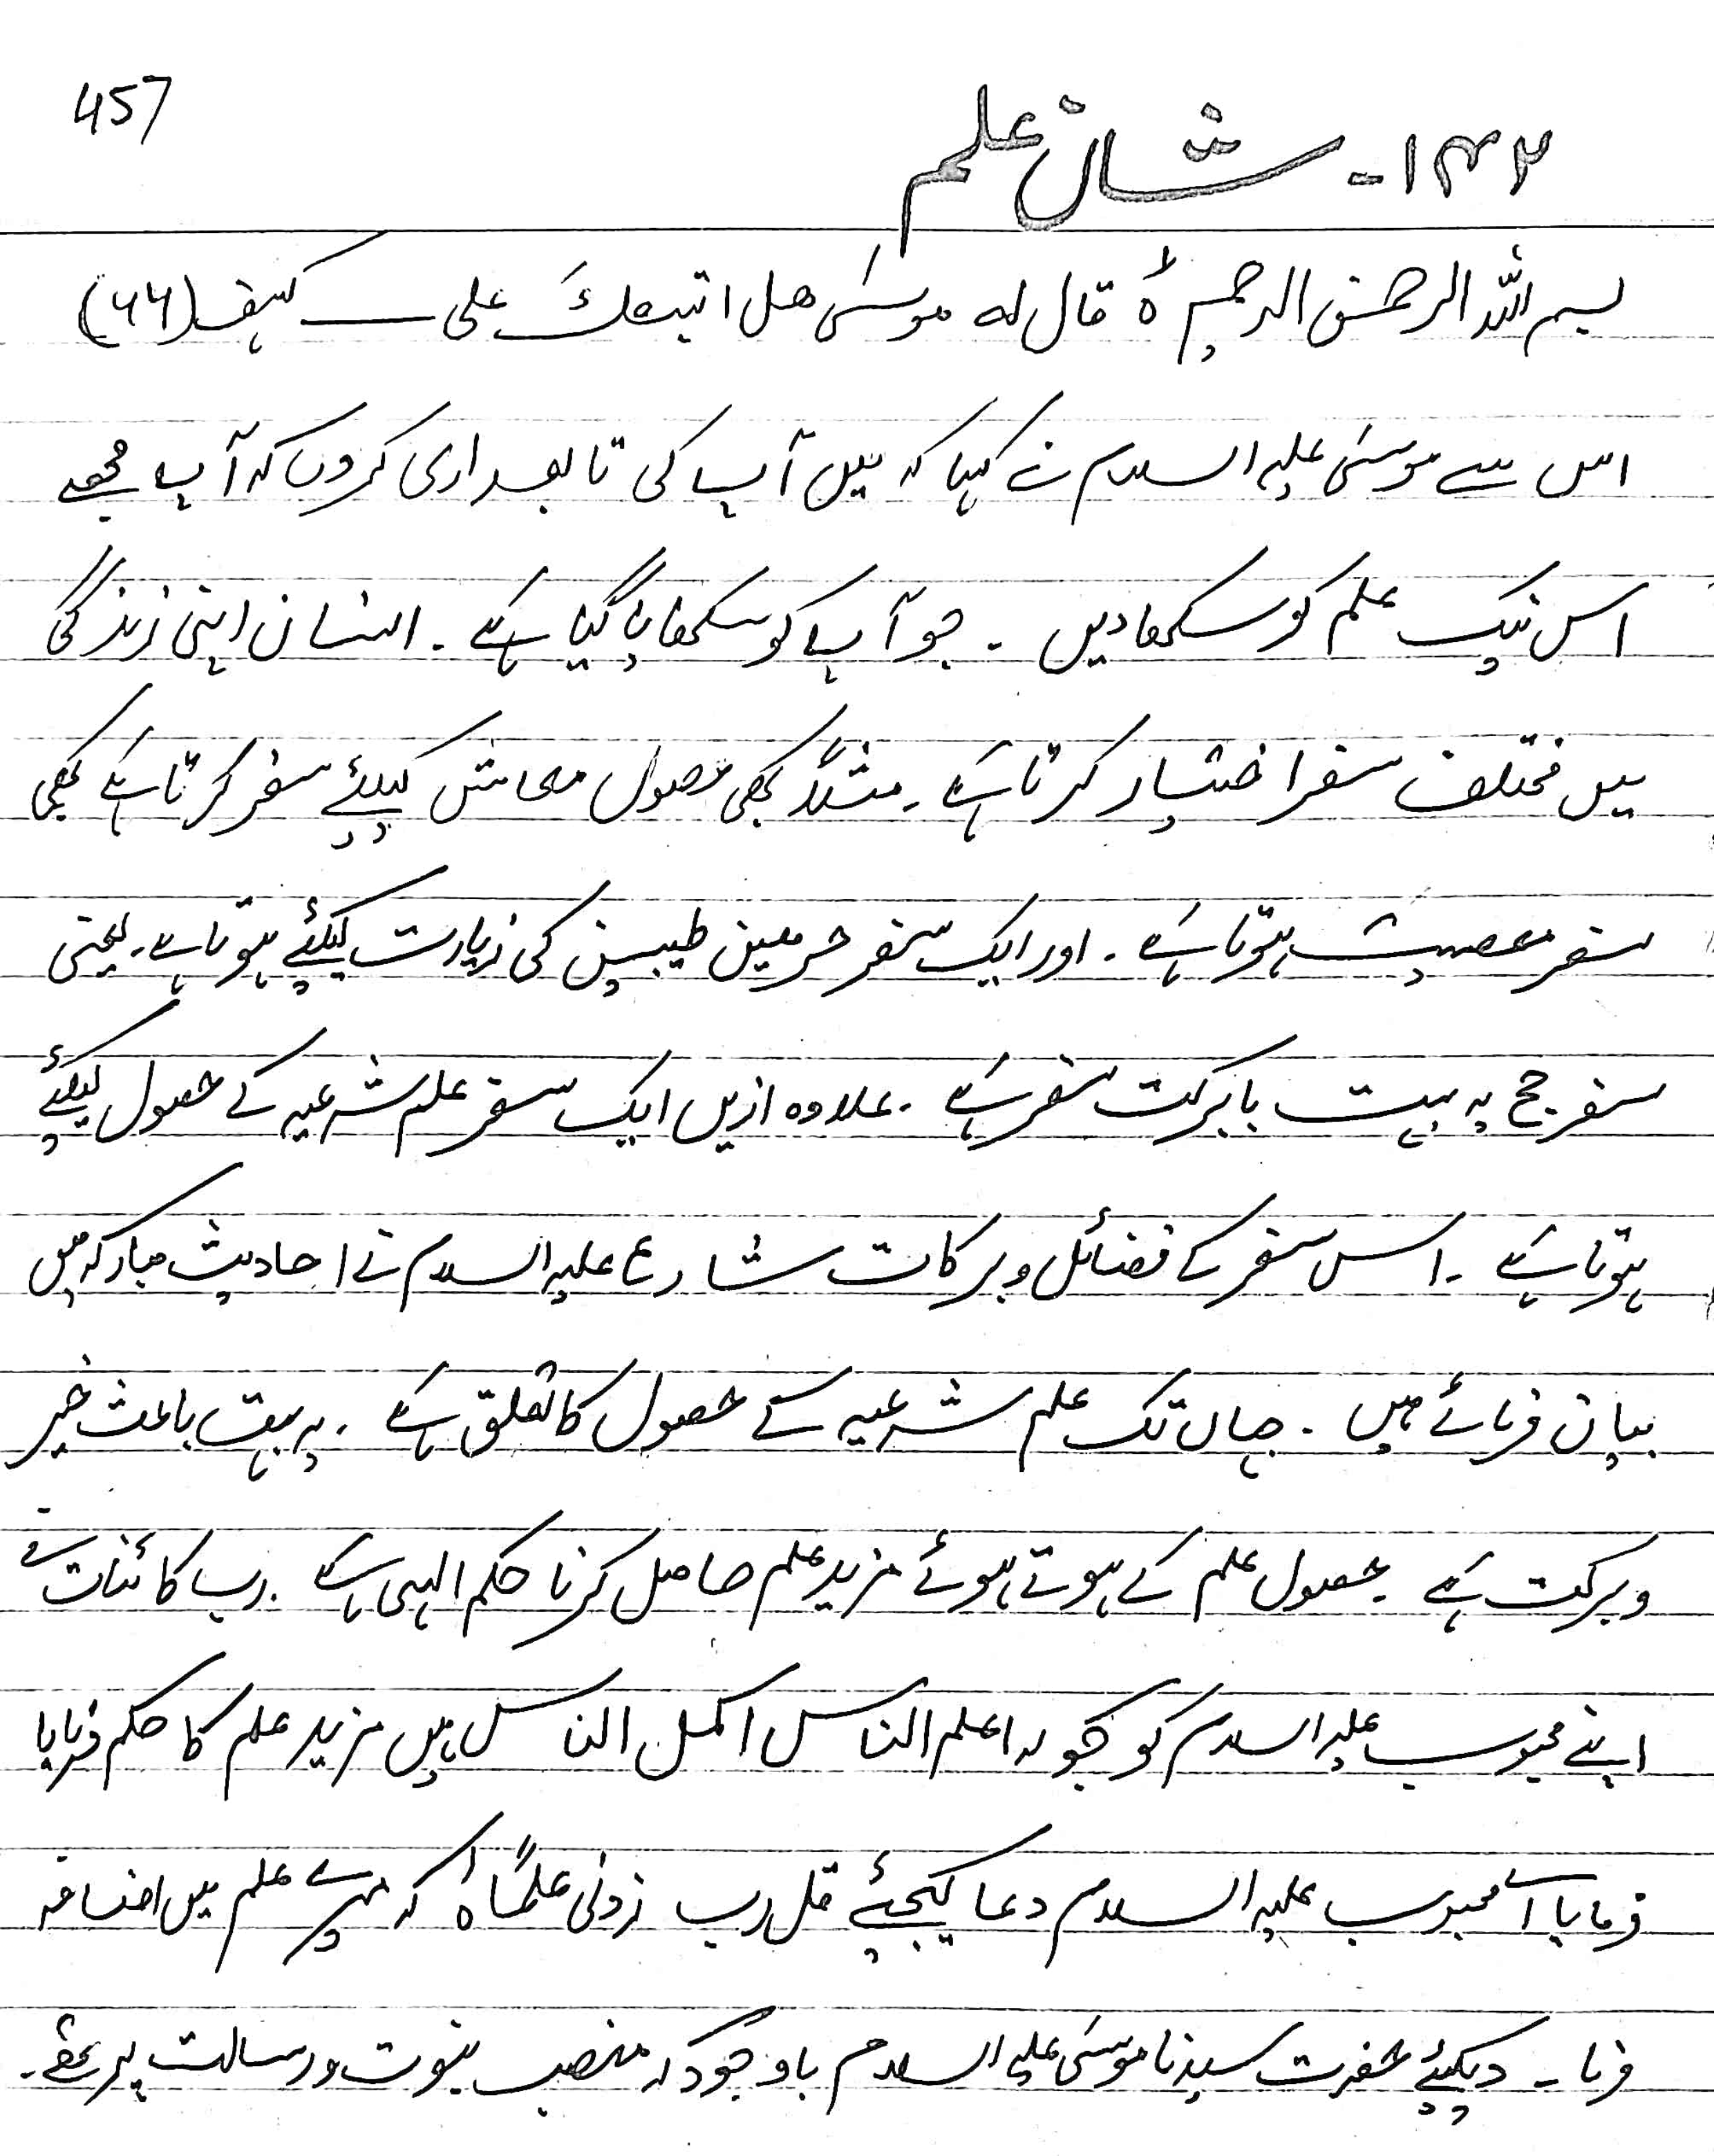 457
۱۴۲- شان علم
بسم اللہ الرحمن الرحیم ہ قال لہ موسیٰ ھل اتبعک علی ــــ کہف (۶۶)
اس سے موسیٰ علیہ السلام نے کہا کہ میں آپ کی تابعداری کروں کہ آپ مجھے
اس نیک علم کو سکھا دیں ۔ جو آپ کو سکھایا گیا ہے ۔ انسان اپنی زندگی
میں مختلف سفر اختیار کرتا ہے ۔ مثلاً کبھی حصول معاش کیلئے سفر کرتا ہے کبھی
سفر معصیت ہوتا ہے ۔ اور ایک سفر حرمین طیبین کی زیارت کیلئے ہوتا ہے ۔ یعنی
سفر حج یہ بہت بابرکت سفر ہے ۔ علاوہ ازیں ایک سفر علم شرعیہ کے حصول کیلئے
ہوتا ہے ۔ اس سفر کے فضائل و برکات شارع علیہ السلام نے احادیث مبارکہ میں
بیان فرمائے ہیں ۔ جہاں تک علم شرعیہ کے حصول کا تعلق ہے ۔ یہ بہت باعث خیر
و برکت ہے ۔ حصول علم کے ہوتے ہوئے مزید علم حاصل کرنا حکم الہی ہے ۔ رب کائنات نے
اپنے محبوب علیہ السلام کو جو کہ اعلم الناس اکمل الناس ہیں مزید علم کا حکم فرمایا
فرمایا اے محبوب علیہ السلام دعا کیجئے قل رب زدنی علماً ہ کہ میرے علم میں اضافہ
فرما ۔ دیکھئے حضرت سیدنا موسیٰ علیہ السلام باوجود کہ منصب نبوت و رسالت پر تھے ۔